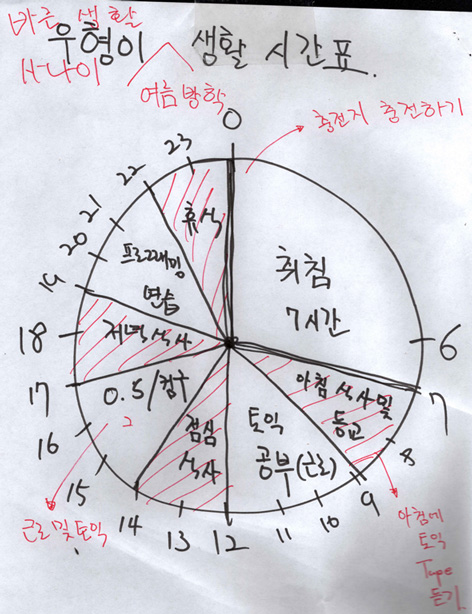 바른 생활
우형이 생활 시간표.
사나이
여름방학
0
충전지 충전하기
23
22
휴식
21
20
프로그래밍
연습
취침
7시간
19
저녁식사
18
6
17
아침 식사 및
등교
7
8
점심
식사
토익
공부(근로)
9
16
15
14
13
12
11
10
근로 및 토익
아침에
토익
Tape
듣기